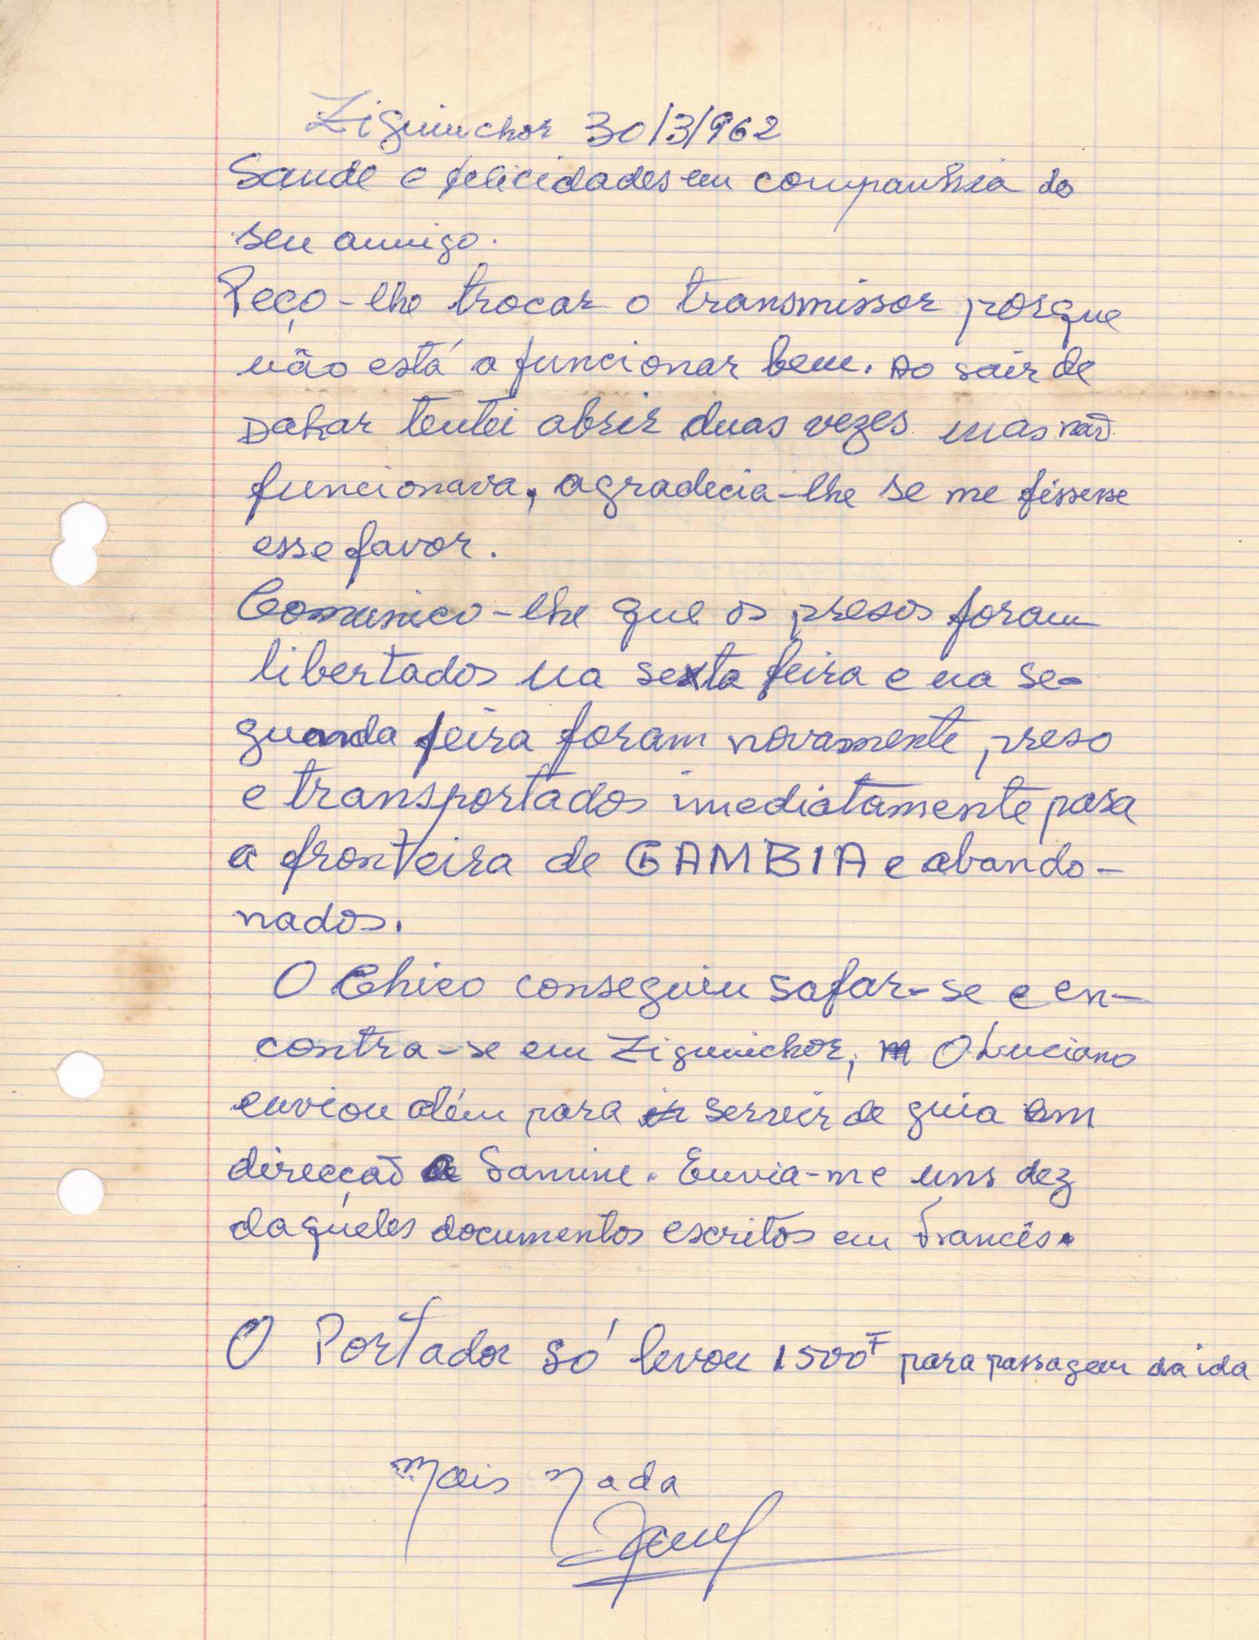 Ziguinchor 30/3/962
Saude e felicidades em companhia do
seu amigo.
Peço-lhe trocar o transmissor porque
não está a funcionar bem. Ao sair de
Dakar tentei abrir duas vezes mas não
funcionava, agradecia-lhe se me fissesse
esse favor.
Comunico-lhe que os presos foram
libertados na sexta feira e na se-
guenda feira foram novamente preso
e transportados imediatamente para
a fronteira de GAMBIA e abando-
nados.
O Chico conseguiu safar-se e en-
contra-se em Ziguinchor, O Luciano
enviou além para servir de guia em
direcção a Samine. Envia-me uns dez
daqueles documentos escritos em Francês.
O Portador só levou 1500F para passagem da ida
Mais Nada